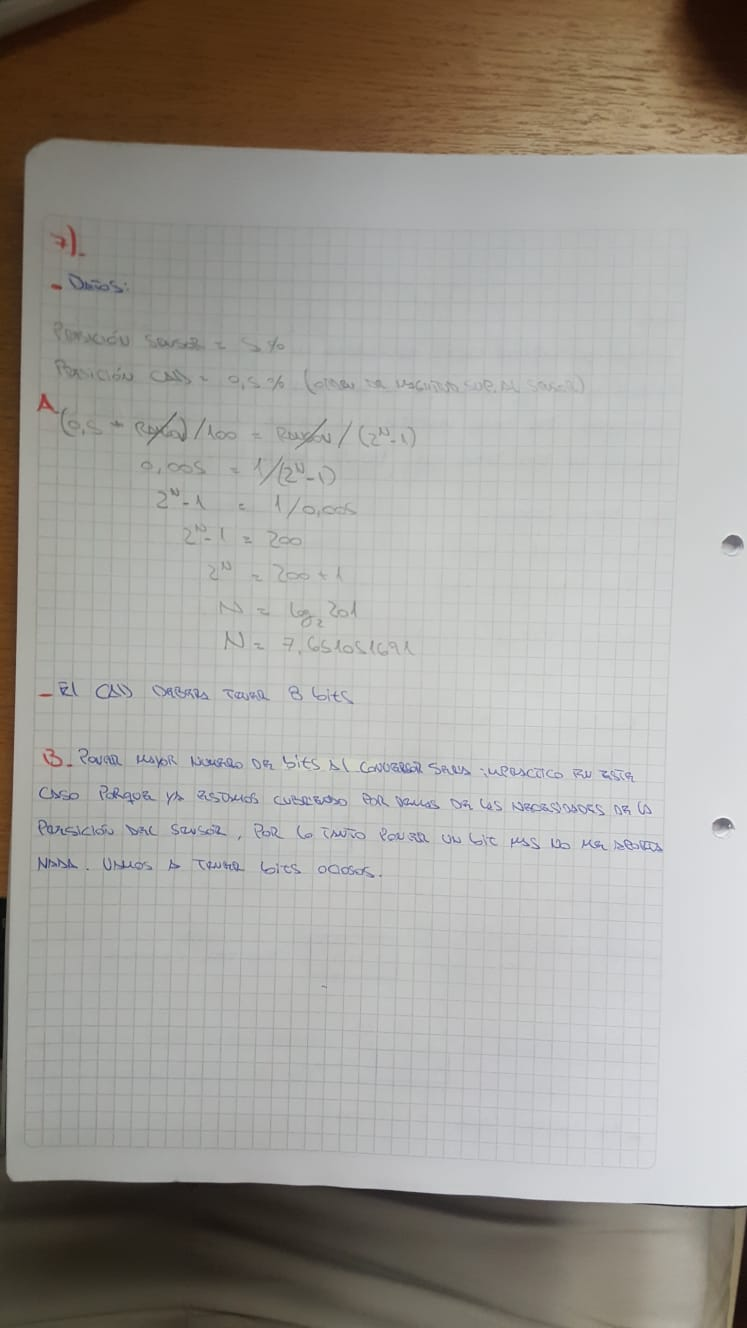 7).
- Datos:
Precisión sensor = 5%
Precisión CAD = 0,5% (orden de magnitud sup. al sensor)
A (0,5 * Rango)/100 = Rango/(2^N-1)
0,005 = 1/(2^N-1)
2^N-1 = 1/0,005
2^N-1 = 200
2^N = 200+1
N = log₂ 201
N = 7,651051691
- El CAD deberá tener 8 bits
B. Poner mayor número de bits al conversor sería en este
caso porque ya estamos cubriendo por demás de las necesidades de la
persición del sensor, por lo tanto poner un bit más no me aporta
nada. Vamos a tener bits ociosos.